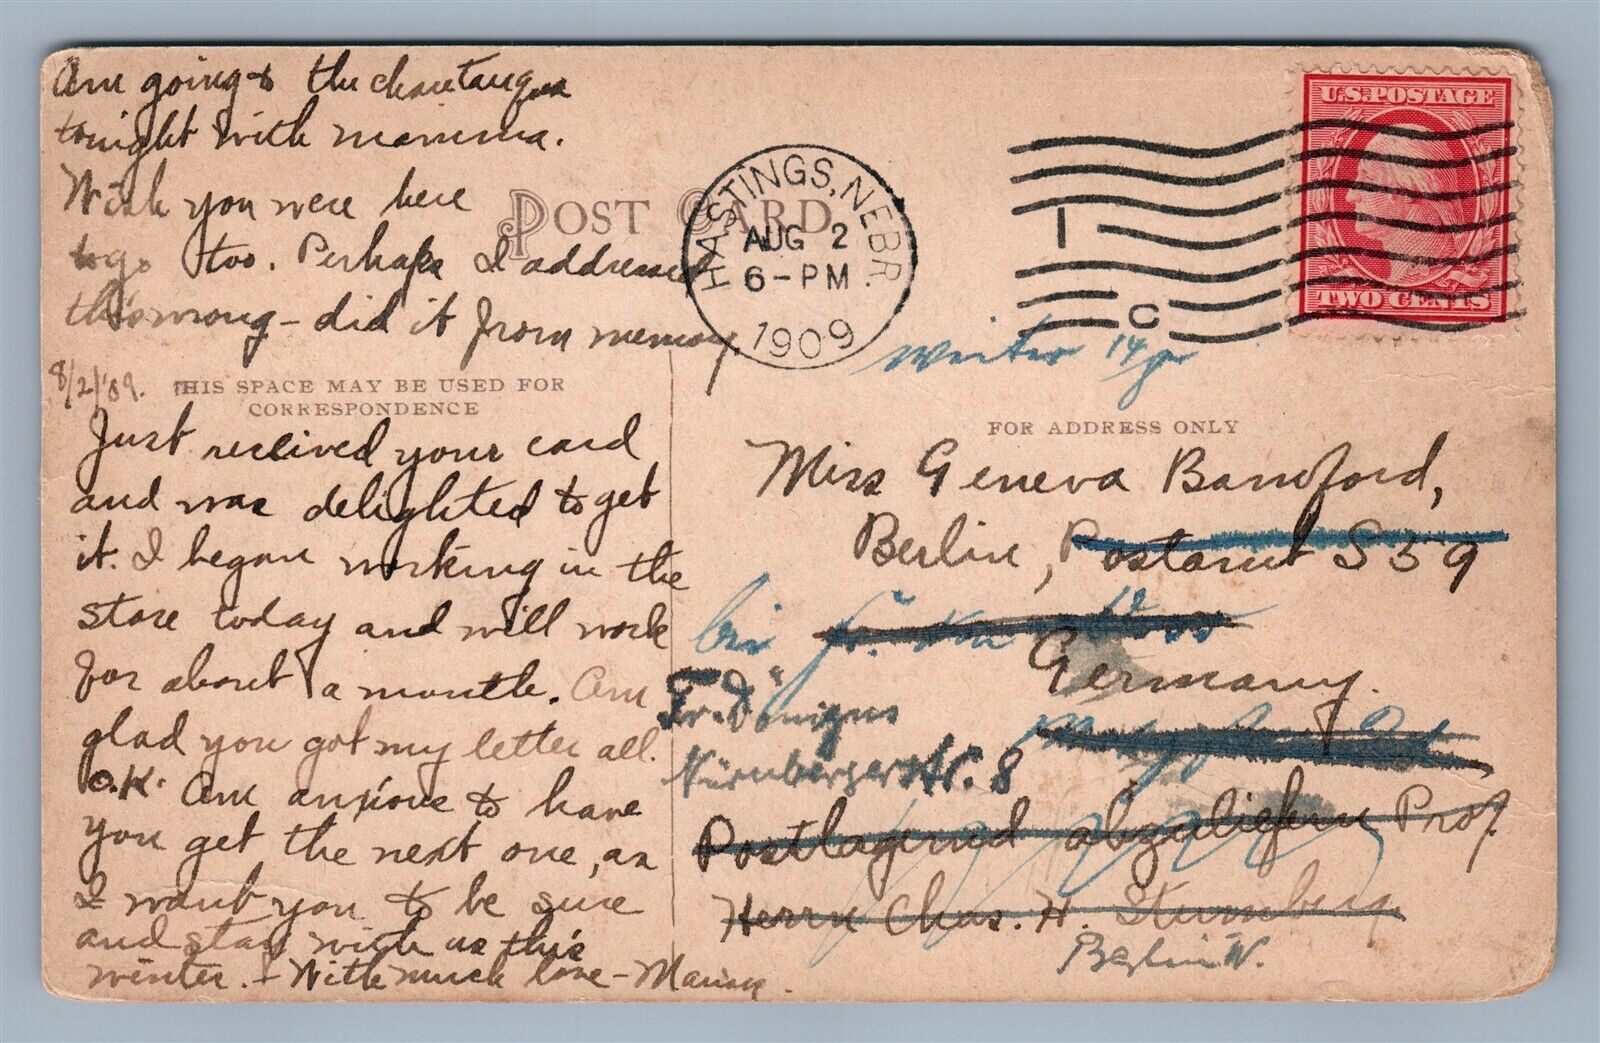 Am going to the chautauqua
tonight with mamma.
Wish you were here
to go too. Perhaps I addressed
this wrong - did it from memory.
8/2/'09.
THIS SPACE MAY BE USED FOR
CORRESPONDENCE
Just received your card
and was delighted to get
it. I began working in the
store today and will work
for about a month. Am
glad you got my letter all.
O.K. Am anxious to have
you get the next one, as
I want you to be sure
and stay with us this
winter. - With much love - Marian.
POST CARD
HASTINGS, NEBR.
AUG 2
6-PM
1909
1
C
U.S. POSTAGE
TWO CENTS
weiter
FOR ADDRESS ONLY
Miss Geneva Bamford,
Berlin, Postamt S 59
bei Fr. von
Germany.
Fr. Dönigus
Nürnbergerstr. 8
Postlagernd abzuliefern Prof.
Herrn Chas. H. Sternberg.
Berlin W.